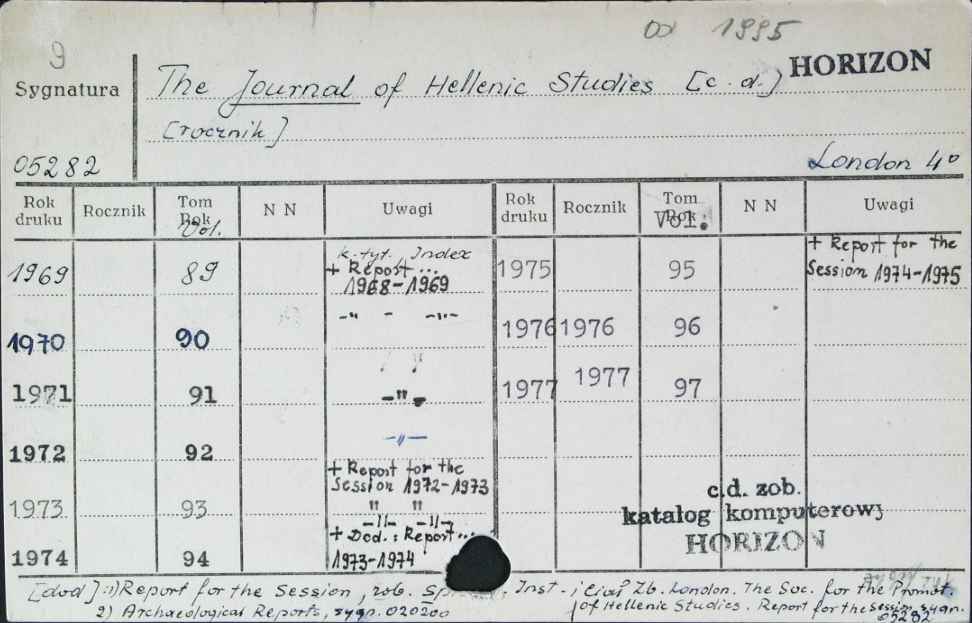 od 1995
9
Sygnatura
The Journal of Hellenic Studies [c.d.] HORIZON
[rocznik]
05282
London 4°
Rok druku Rocznik Tom Rok Vol. N N Uwagi Rok druku Rocznik Tom Rok Vol: N N Uwagi
1969 89 k. tyt. Index
+ Report ...
1968-1969
1970 90 -"- -"-
1971 91 -"-
1972 92 -"-
+ Report for the
Session 1972-1973
1973 93 " "
-"- -"-
+ Dod.: Report...
1974 94 1973-1974
1975 95 + Report for the
Session 1974-1975
1976 1976 96
1977 1977 97
c.d. zob.
katalog komputerowy
HORIZON
[dod]: 1) Report for the Session, zob. Inst. Zb. London. The Soc. for the Promot.
of Hellenic Studies. Report for the Session, sygn.
05282
2) Archaeological Reports, sygn. 020200